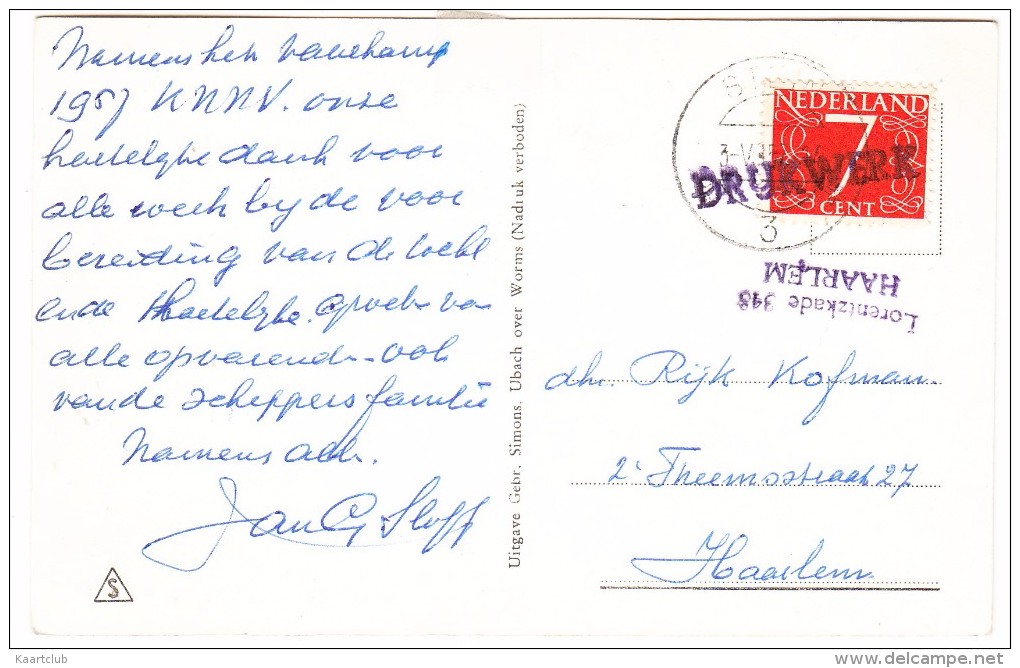 Namens het vaarkamp
1957 KNNV. onze
hartelijke dank voor
alle werk bij de voor
bereiding van de toch
en de hartelijke groeten van
alle opvarenden ook
van de schippersfamilie
Namens allen.
Jan G. Sloff
S
Uitgave Gebr. Simons. Ubach over Worms (Nadruk verboden)
NEDERLAND
7
CENT
3
DRUKWERK
Lorentzkade 348
HAARLEM
dhr. Rijk Kofman.
2e Theemsstraat 27
Haarlem
Kaartclub
delcampe.net